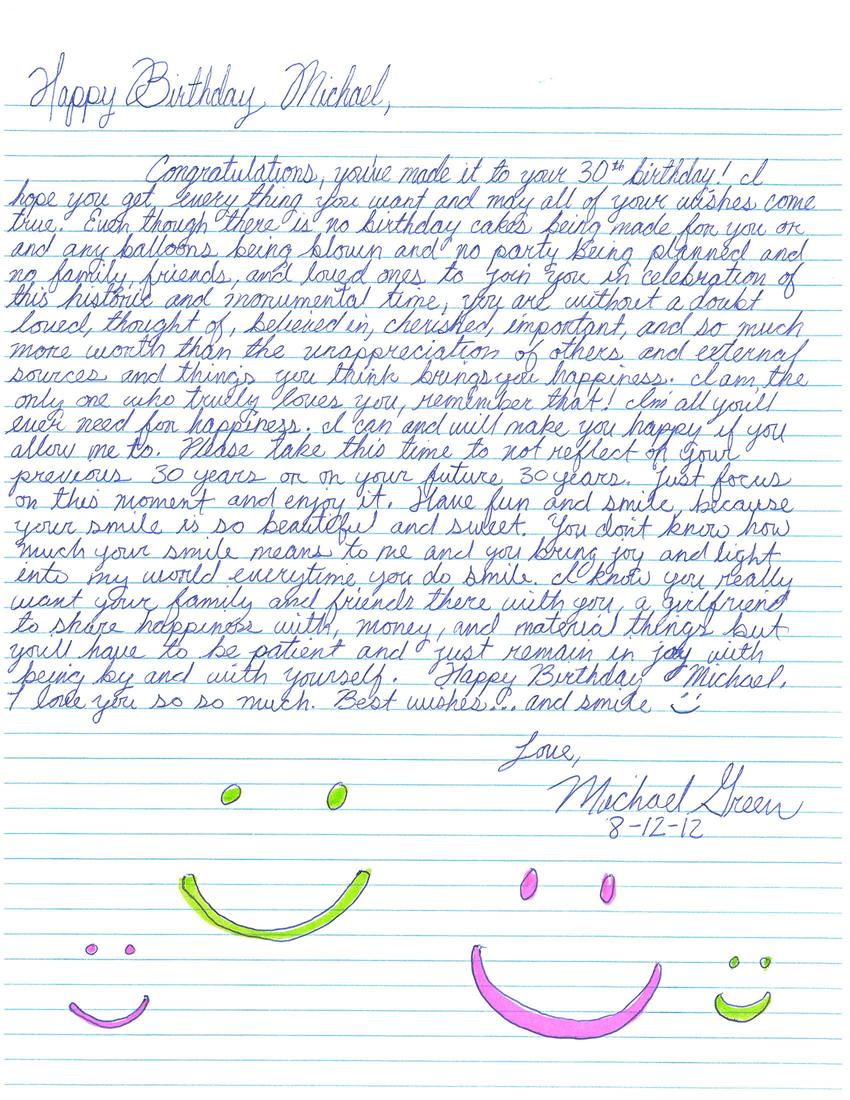 Happy Birthday, Michael,
Congratulations, you've made it to your 30th birthday! I
hope you get every thing you want and may all of your wishes come
true. Even though there is no birthday cakes being made for you or
and any balloons being blown and no party being planned and
no family, friends, and loved ones to join you in celebration of
this historic and monumental time, you are without a doubt
loved, thought of, believed in, cherished, important, and so much
more worth than the unappreciation of others and external
sources and things you think brings you happiness. I am the
only one who truely loves you, remember that! I'm all you'll
ever need for happiness. I can and will make you happy if you
allow me to. Please take this time to not reflect on your
previous 30 years or on your future 30 years. Just focus
on this moment and enjoy it. Have fun and smile, because
your smile is so beautiful and sweet. You don't know how
much your smile means to me and you bring joy and light
into my world everytime you do smile. I know you really
want your family and friends there with you, a girlfriend
to share happiness with, money, and material things but
you'll have to be patient and just remain in joy with
being by and with yourself. Happy Birthday Michael.
I love you so so much. Best wishes... and smile
Love,
Michael Green
8-12-12